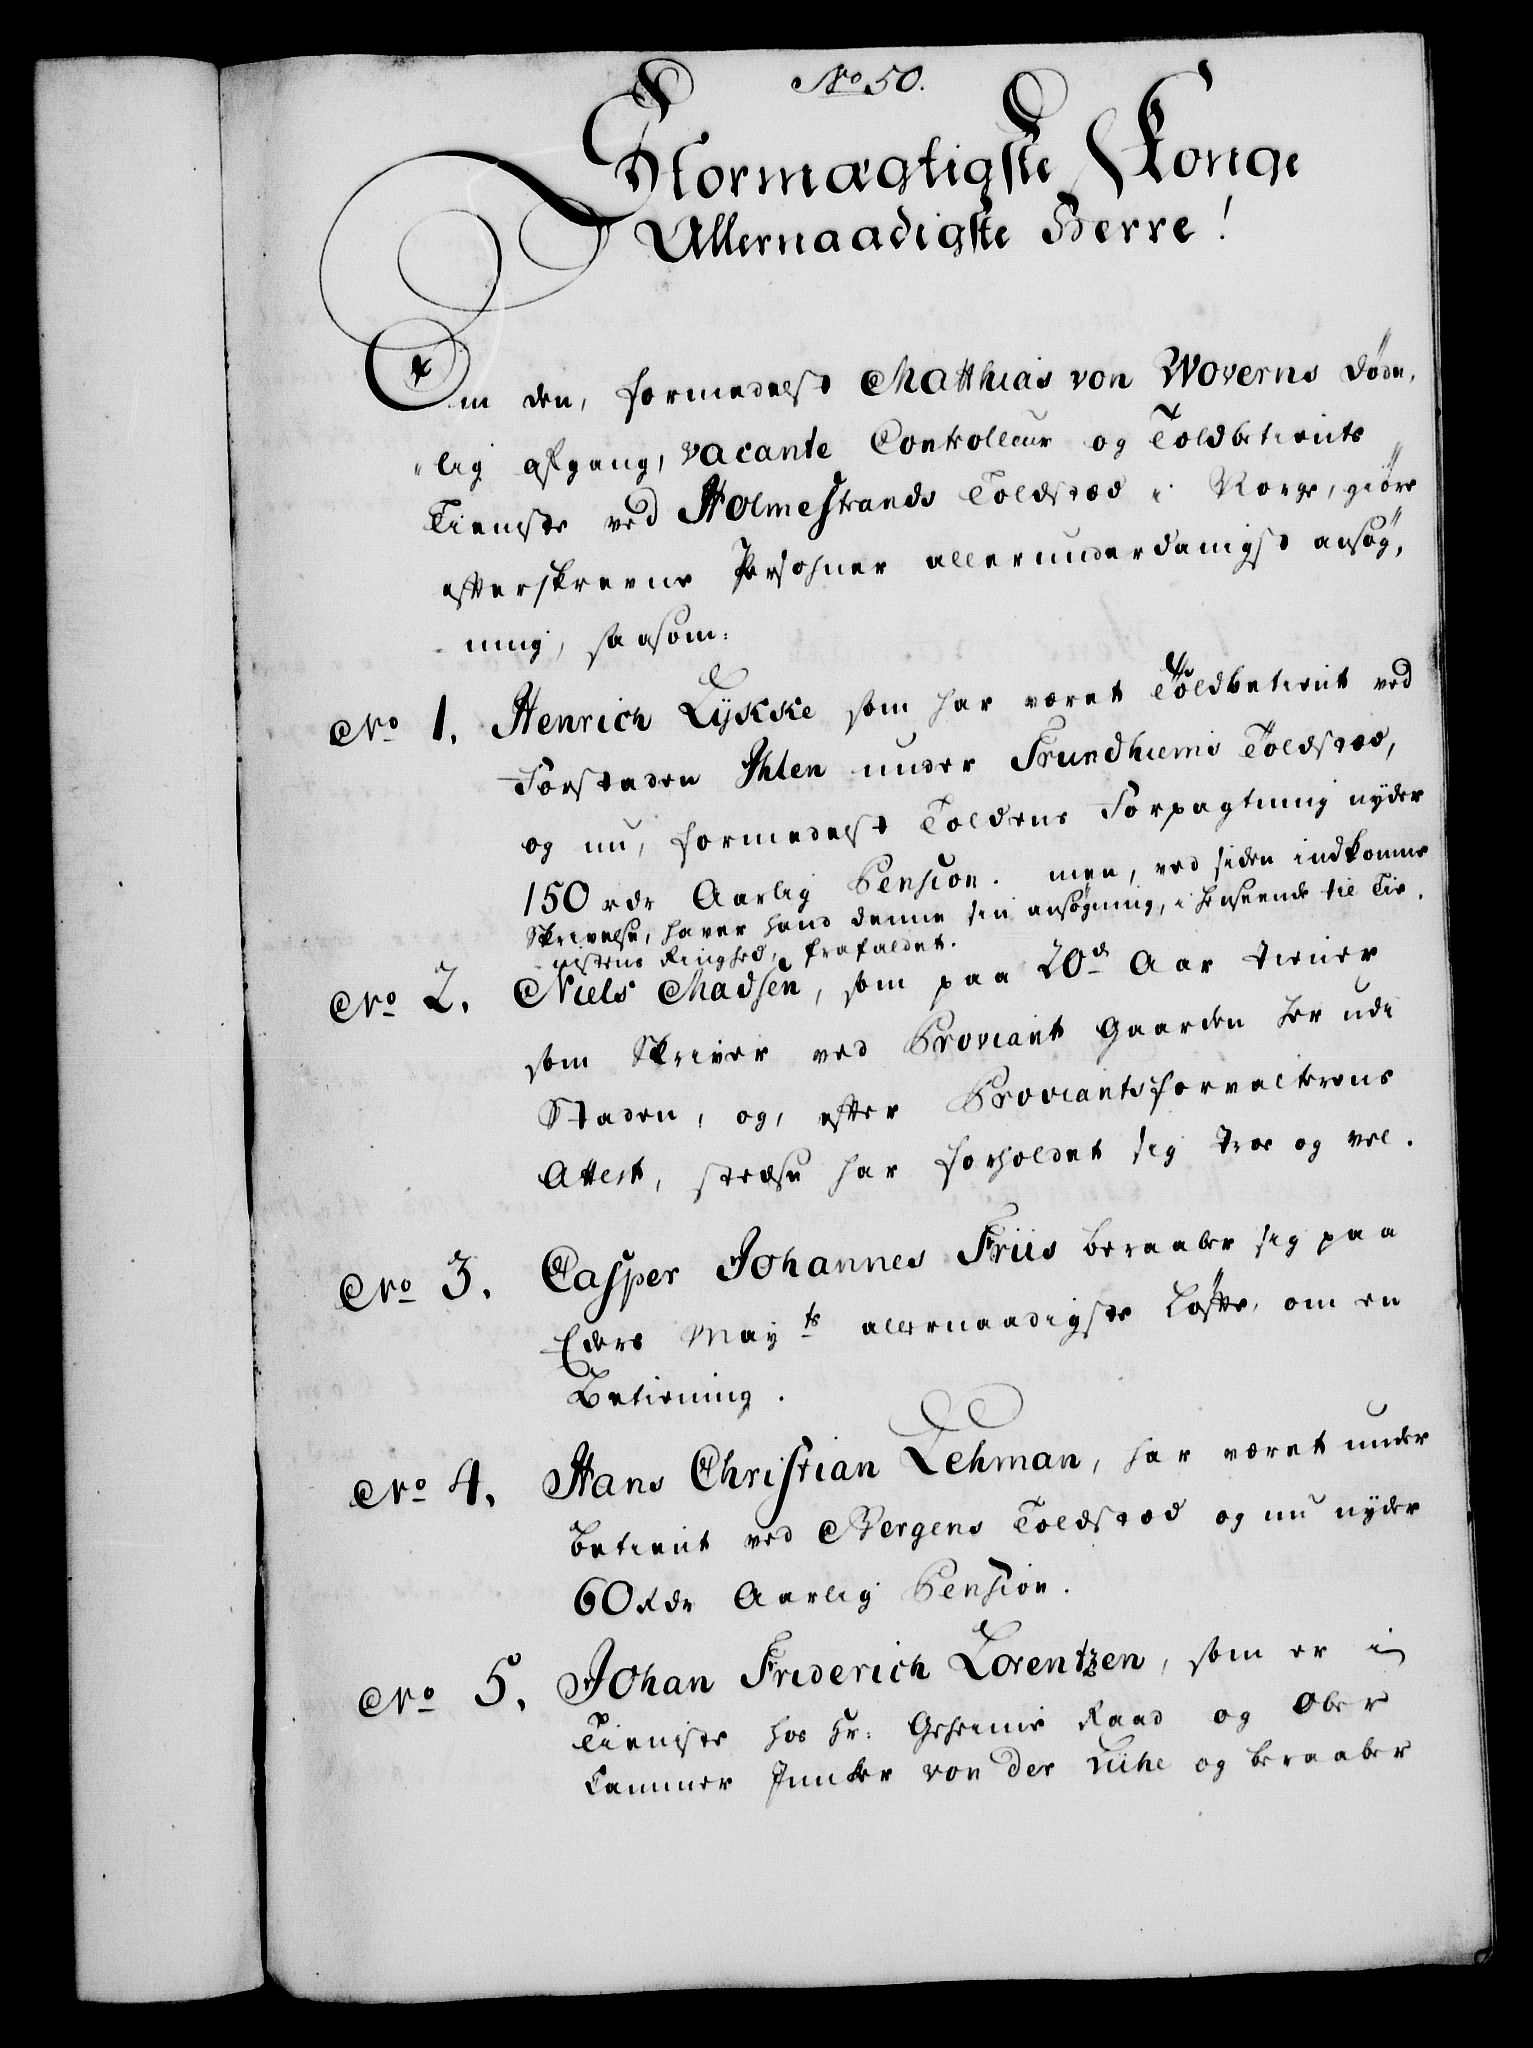 No 50.
Stormægtigste Konge
Allernaadigste Herre!
Om den, formedelst Matthias von Woverns døde,
lig afgang, vacante Controlleur og Toldbetients
Tieniste ved Holmestrands Toldsted i Norge, giøre
efterskrevne Persohner allerunderdanigst ansøg,
ning, saasom:
No 1. Henrich Lykke som har været Toldbetient ved
Forstaden Ihlen under Trundhiems Toldsted,
og nu, formedelst Toldens Forpagtning nyder
150 rdr Aarlig Pension. men, ved siden indkomne
Skrivelse, haver hand denne sin ansøgning, i henseende til Tie,
nistens Ringhed, frafaldet.
No 2. Niels Madsen, som paa 20de Aar tiener
som Skriver ved Proviant Gaarden her udi
Staden, og, efter Proviantsforvalterens
Attest, stedse har forholdet sig troe og vel.
No 3. Casper Johannes Friis beraaber sig paa
Eders Mayts allernaadigste Løfte, om en
Betiening.
No 4. Hans Christian Lehman, har været under
betient ved Bergens Toldsted og nu nyder
60 Rdr Aarlig Pension.
No 5. Johan Friderich Lorentzen, som er i
Tieniste hos Hr: Geheime Raad og Ober
Cammer Junker von der Lühe og beraaber